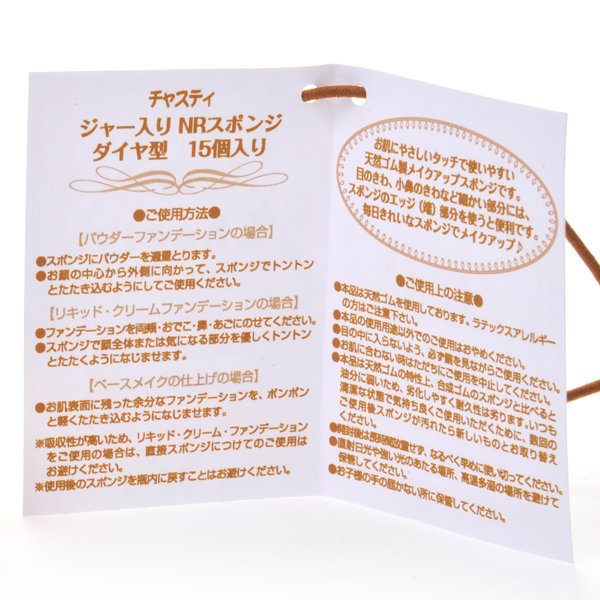 チャスティ
ジャー入り NRスポンジ
ダイヤ型　15個入り
●ご使用方法●
【パウダーファンデーションの場合】
●スポンジにパウダーを適量とります。
●お顔の中心から外側に向かって、スポンジでトントン
とたたき込むようにしてご使用ください。
【リキッド・クリームファンデーションの場合】
●ファンデーションを両頬・おでこ・鼻・あごにのせてください。
●スポンジで顔全体または気になる部分を優しくトントン
とたたくようになじませます。
【ベースメイクの仕上げの場合】
●お肌表面に残った余分なファンデーションを、ポンポン
と軽くたたき込むようになじませます。
※吸収性が高いため、リキッド・クリーム・ファンデーション
をご使用の場合は、直接スポンジにつけてのご使用は
お避けください。
※使用後のスポンジを瓶内に戻すことはお避けください。
お肌にやさしいタッチで使いやすい
天然ゴム製メイクアップスポンジです。
目のきわ、小鼻のきわなど細かい部分には、
スポンジのエッジ（端）部分を使うと便利です。
毎日きれいなスポンジでメイクアップ♪
●ご使用上の注意●
●本品は天然ゴムを使用しております。ラテックスアレルギー
の方はご注意下さい。
●本品の使用用途以外でのご使用はおやめください。
●目の中に入らないよう、必ず鏡を見ながらご使用ください。
●お肌に合わない時はただちにご使用を中止してください。
●本品は天然ゴムの特性上、合成ゴムのスポンジと比べると
油分に弱いため、劣化しやすく耐久性は劣ります。いつも
清潔な状態で気持ち良くご使用いただくために、数回の
ご使用後スポンジが汚れたら新しいものとお取り替え
ください。
●開封後は長時間放置せず、なるべく早めに使い切ってください。
●直射日光や強い光のあたる場所、高温多湿の場所を避けて
保管してください。
●お子様の手の届かない所に保管してください。